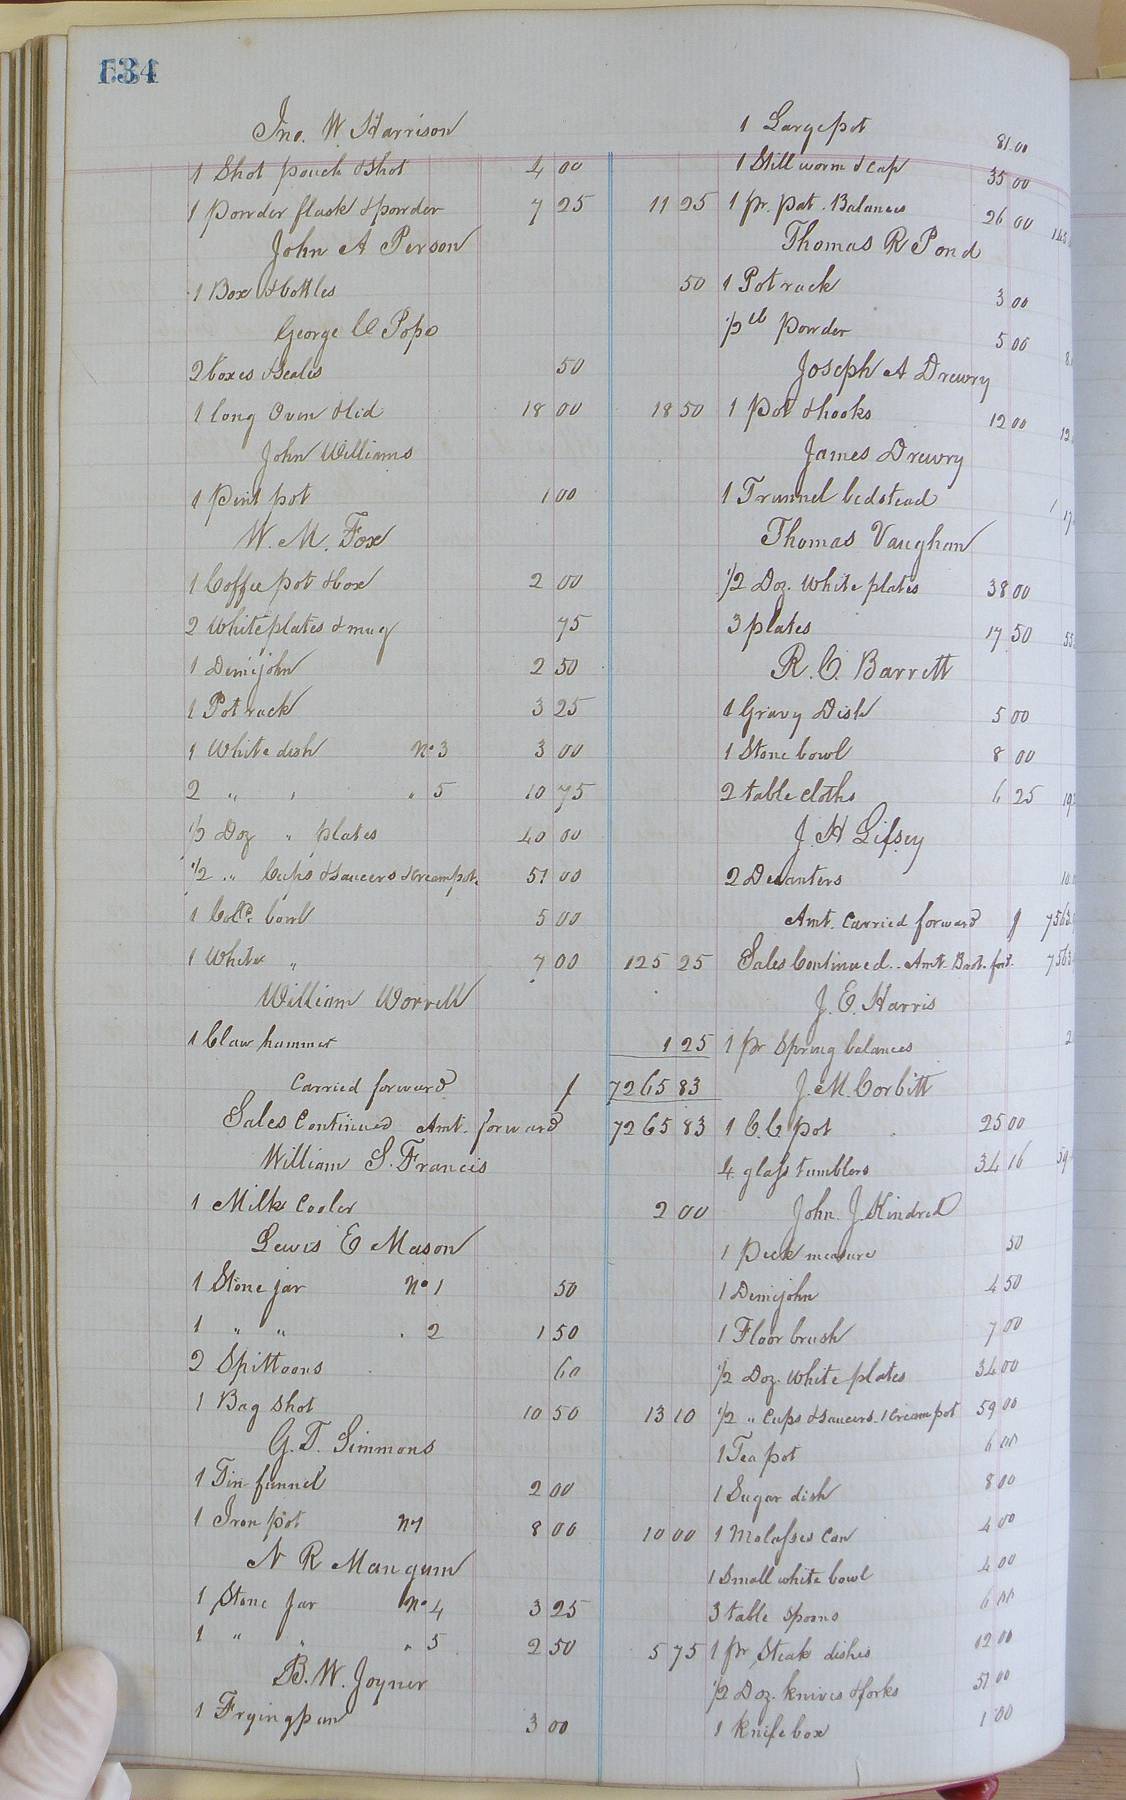 634
Jno. W Harrison
1 Shot pouch & Shot 4 00
1 Powder flask & powder 7 25 11 25
John A Person
1 Box & bottles 50
George C Pope
2 boxes & scales 50
1 long Oven & lid 18 00 18 50
John Williams
1 Pint pot 1 00
W. M. Fox
1 Coffee pot & box 2 00
2 White plates & mug 75
1 Demijohn 2 50
1 Pot rack 3 25
1 White dish No 3 3 00
2 " " " 5 10 75
1/2 Doz " plates 40 00
1/2 " Cups & saucers & cream pot. 51 00
1 Cold. bowl 5 00
1 White " 7 00 125 25
William Worrell
1 Claw hammer 1 25
Carried forward 7265 83
Sales Continued Amt. forward 7265 83
William S. Francis
1 Milk Cooler 2 00
Lewis E Mason
1 Stone jar No 1 50
1 " " " 2 1 50
2 Spittoons 60
1 Bag Shot 10 50 13 10
G. T. Simmons
1 Tin funnel 2 00
1 Iron pot No 1 8 00 10 00
N R Mangum
1 Stone Jar No 4 3 25
1 " " " 5 2 50 5 75
B. W. Joyner
1 Fryingpan 3 00
1 Large pot 81 00
1 Still worm & cap 35 00
1 pr. pat. Balances 26 00
Thomas R Pond
1 Pot rack 3 00
1/2 lb Powder 5 00
Joseph A Drewry
1 Pot & hooks 12 00
James Drewry
1 Trunnel bedstead
Thomas Vaughan
1/2 Doz. White plates 38 00
3 plates 17 50
R. C. Barrett
1 Gravy Dish 5 00
1 Stone bowl 8 00
2 table cloths 6 25
J. H Lifsey
2 Decanters
Amt. Carried forward
Sales Continued.. Amt. Brot. ford.
J. E. Harris
1 pr Spring balances
J. M. Corbitt
1 C. C. pot 25 00
4 glass tumblers 34 16
John. J. Kindred
1 Peck measure 50
1 Demijohn 4 50
1 Floor brush 7 00
1/2 Doz. White plates 34 00
1/2 " Cups & saucers. 1 Cream pot 59 00
1 Tea pot 6 00
1 Sugar dish 8 00
1 Molasses Can 4 00
1 Small white bowl 4 00
3 table spoons 6 00
1 pr Steak dishes 12 00
1/2 Doz. knives & forks 51 00
1 knife box 1 00